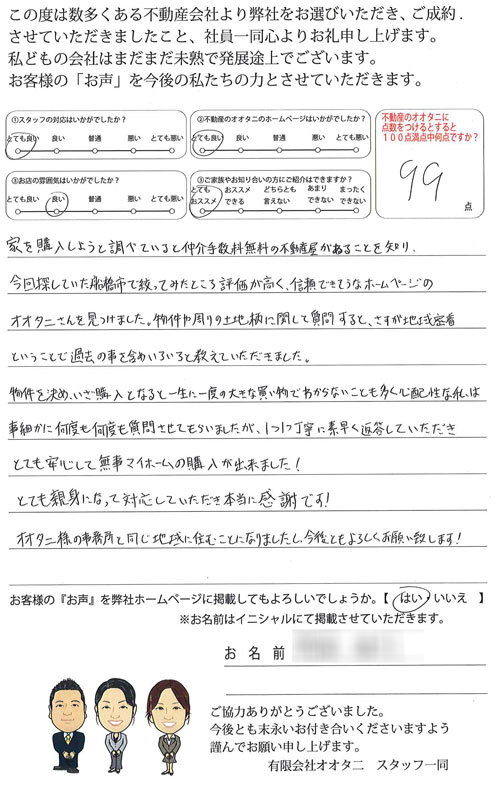 この度は数多くある不動産会社より弊社をお選びいただき、ご成約.
させていただきましたこと、社員一同心よりお礼申し上げます。
私どもの会社はまだまだ未熟で発展途上でございます。
お客様の「お声」を今後の私たちの力とさせていただきます。
①スタッフの対応はいかがでしたか？
とても良い 良い 普通 悪い とても悪い
②不動産のオオタニのホームページはいかがでしたか？
とても良い 良い 普通 悪い とても悪い
③お店の雰囲気はいかがでしたか？
とても良い 良い 普通 悪い とても悪い
③ご家族やお知り合いの方にご紹介はできますか？
とても おススメ どちらとも あまり まったく
おススメ できる 言えない できない できない
不動産のオオタニに
点数をつけるとすると
１００点満点中何点ですか？
99
点
家を購入しようと調べていると仲介手数料無料の不動産屋があることを知り、
今回探していた船橋市で絞ってみたところ評価が高く、信頼できそうなホームページの
オオタニさんを見つけました。物件や周りの土地柄に関して質問すると、さすが地域密着
ということで過去の事を含めいろいろと教えていただきました。
物件を決め、いざ購入となると一生に一度の大きな買い物でわからないことも多く心配性な私は
事細かに何度も何度も質問させてもらいましたが、1つ1つ丁寧に素早く返答していただき
とても安心して無事マイホームの購入が出来ました！
とても親身になって対応していただき本当に感謝です！
オオタニ様の事務所と同じ地域に住むことになりましたし、今後ともよろしくお願い致します！
お客様の『お声』を弊社ホームページに掲載してもよろしいでしょうか。【 はい・いいえ 】
※お名前はイニシャルにて掲載させていただきます。
お 名 前
ご協力ありがとうございました。
今後とも末永いお付き合いくださいますよう
謹んでお願い申し上げます。
有限会社オオタニ スタッフ一同